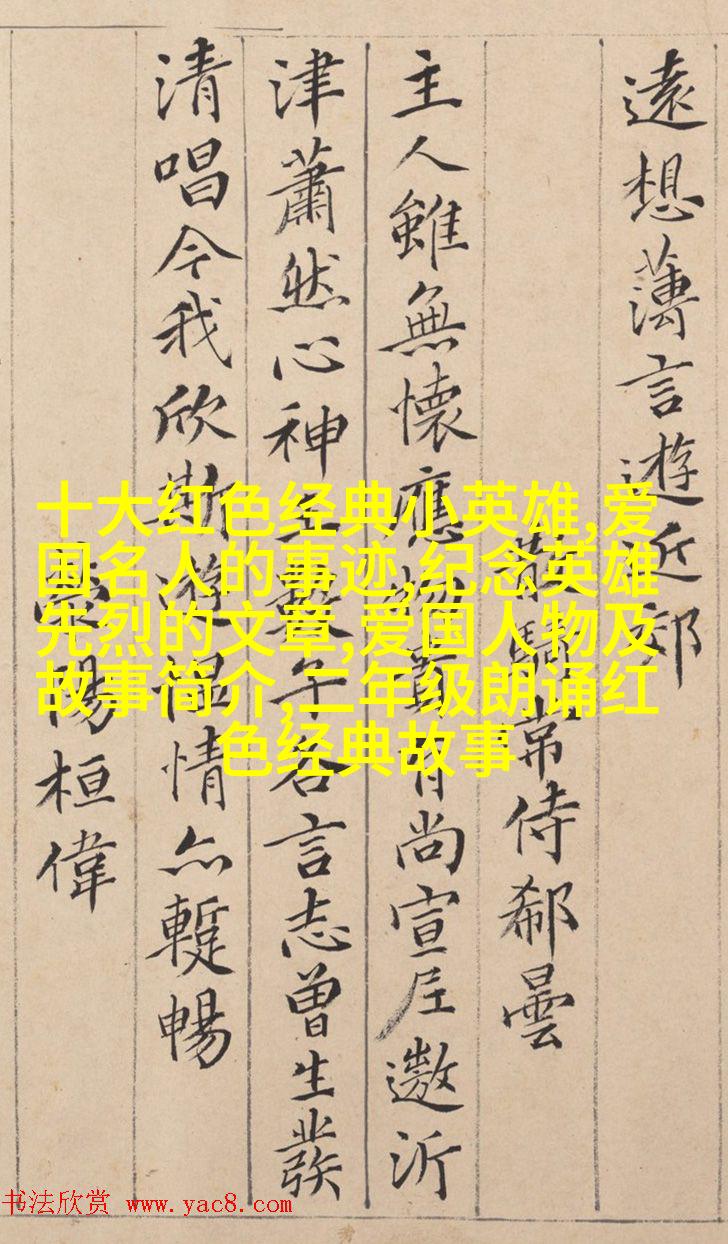 遠想薄言遊近郊
散騎常侍郗曇
主人雖無懷應物貴有尚宣尼遨沂
津蕭然心神王數子各言志曾生發
清唱今我欣斯遊慍情亦蹔暢
陽桓偉
十大红色经典小英雄,爱
国名人的事迹,纪念英雄
先烈的文章,爱国人物及
故事简介,二年级朗诵红
色经典故事
书法欣赏 www.yac8.com